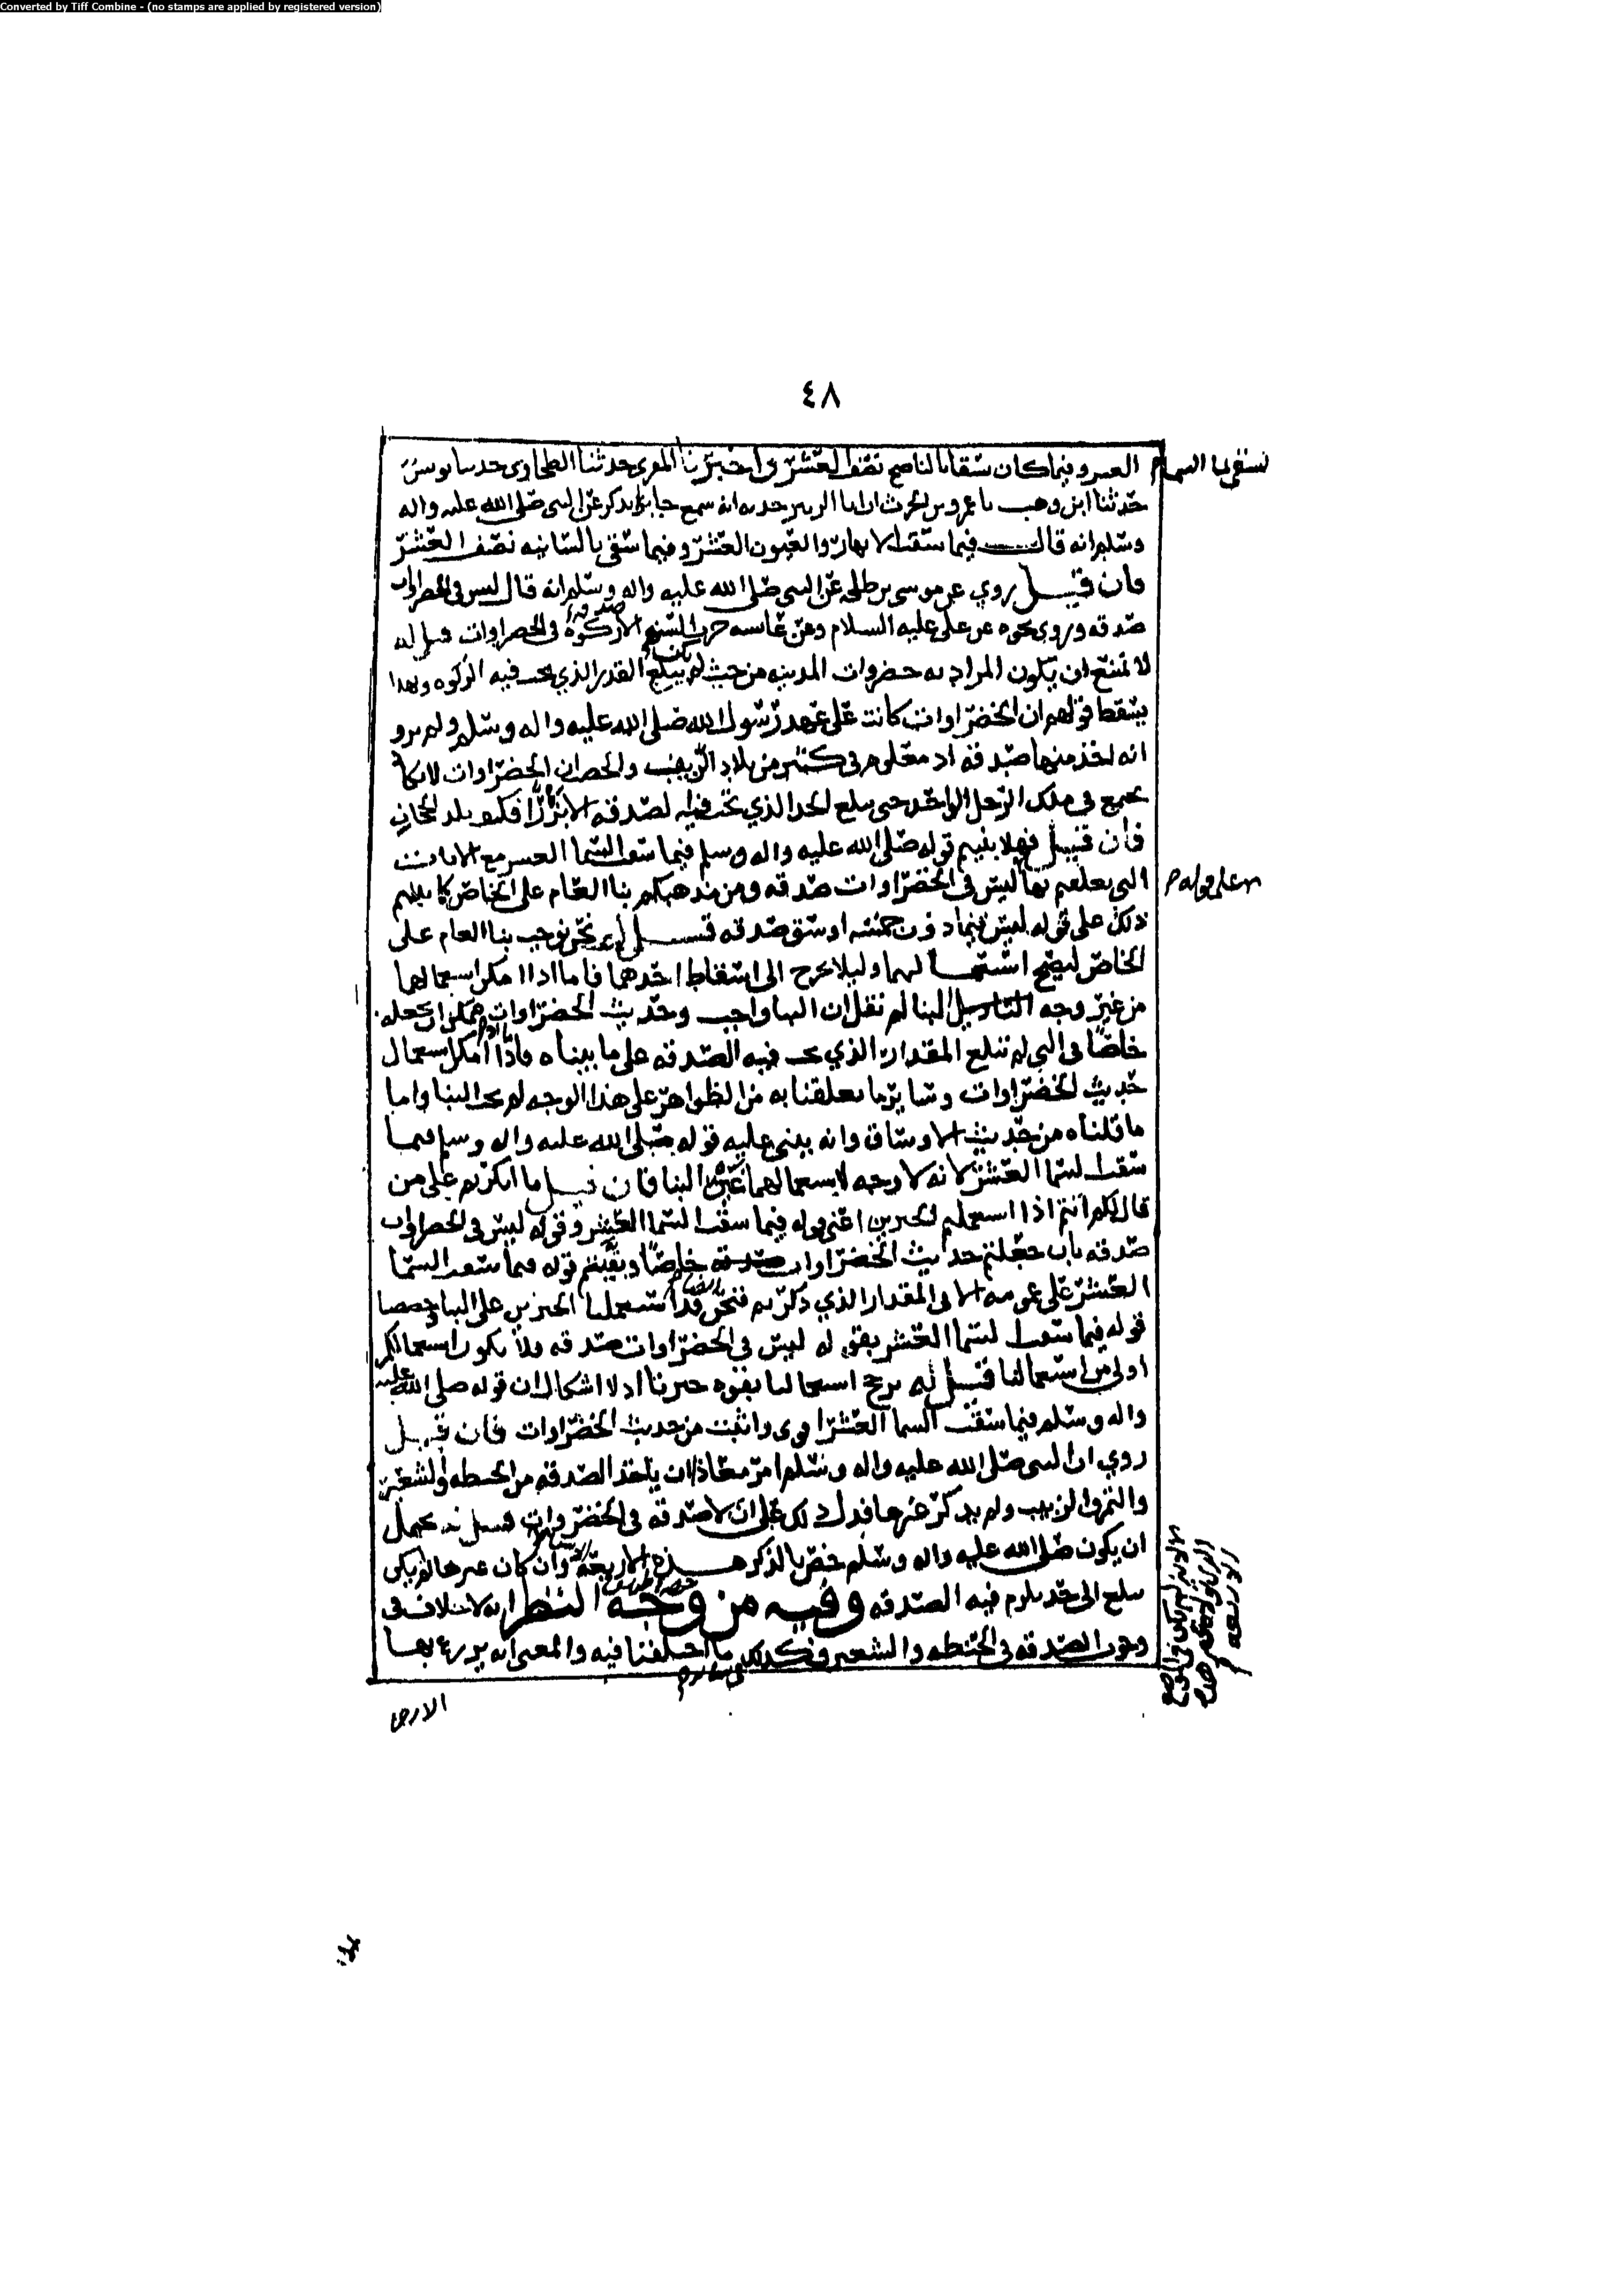 Converted by Tiff Combine - (no stamps are applied by registered version)
٤٨
العشر وفيما كان سقا بالناضح نصف العشر واخبرنا المقري حدثنا الطحاوي حدثنا يونس
حدثنا ابن وهب عمرو بن الحرث ان ابا الزبير حدثه انه سمع جابرا يذكر عن النبي صلى الله عليه واله
وسلم انه قال فيما سقت الانهار والعيون العشر وفيما سقي بالسانيه نصف العشر
فان قيل روي عن موسى بن طلحه عن النبي صلى الله عليه واله وسلم انه قال ليس في الخضراوات
صدقه وروي نحوه عن علي عليه السلام وعن عائشه جرت السنه الا زكوة في الخضراوات قيل له
لا يمتنع ان يكون المراد به خضروات المدينه من حيث لم يبلغ القدر الذي يجب فيه الزكوه وبهذا
يسقط قولهم ان الخضراوات كانت على عهد رسول الله صلى الله عليه واله وسلم ولم يرو
انه اخذ منها صدقه اذ معلوم في كثير من بلاد الريف والحصران الخضراوات لا تكاد
تجتمع في ملك الرجل الواحد حتى يبلغ الحد الذي تجب فيه الصدقه الا نزرا فكيف بلد الحجاز
فان قيل فهلا بنيتم قوله صلى الله عليه واله وسلم فيما سقت السما العشر مع الايات
التي تعلقتم بها ليس في الخضراوات صدقه ومن مذهبكم بنا العام على الخاص كما بنيتم
ذلك على قوله ليس فيما دون خمسه اوسق صدقه قيل له نحن نوجب بنا العام على
الخاص ليصح استعمالهما وليلا نخرج الى اسقاط احدهما فاما اذا امكن استعمالهما
من غير وجه البنا لم نقل ان البنا واجب وحديث الخضراوات يمكن ان نجعله
خاصا في التي لم تبلغ المقدار الذي يجب فيه الصدقه على ما بيناه فاذا امكن استعمال
حديث الخضراوات وسائر ما تعلقنا به من الظواهر على هذا الوجه لم يجب البنا واما
ما قلناه من حديث الاوساق وانه يبنى عليه قوله صلى الله عليه واله وسلم فيما
سقت السما العشر لانه لا وجه لاستعمالهما غير البنا فان قيل ما انكرتم على من
قال لكم انتم اذا استعملتم الخبرين اعني قوله فيما سقت السما العشر وقوله ليس في الخضراوات
صدقه بان جعلتم حديث الخضراوات خاصا وبقيتم قوله فيما سقت السما
العشر على عمومه الا في المقدار الذي ذكرتم فنحن قد استعملنا الخبرين على البنا وخصصنا
قوله فيما سقت السما العشر بقوله ليس في الخضراوات صدقه ولا يكون استعمالكم
اولى من استعمالنا قيل له يرجح استعمالنا بقوه خبرنا اذ لا اشكال ان قوله صلى الله عليه
واله وسلم فيما سقت السما العشر اقوى واثبت من حديث الخضراوات فان قيل
روي ان النبي صلى الله عليه واله وسلم امر معاذا ان ياخذ الصدقه من الحنطه والشعير
والتمر والزبيب ولم يذكر غيرها فدل ذلك على ان لا صدقه في الخضروات قيل له يحتمل
ان يكون صلى الله عليه واله وسلم خص بالذكر هذه الاربعه وان كان غيرها لم يكن
يبلغ الى حد يلزم فيه الصدقه وفيه من وجه النظر انه لا خلاف في
وجوب الصدقه في الحنطه والشعير فكذلك ما اختلفنا فيه والمعنى انه يزرع بها
الارض